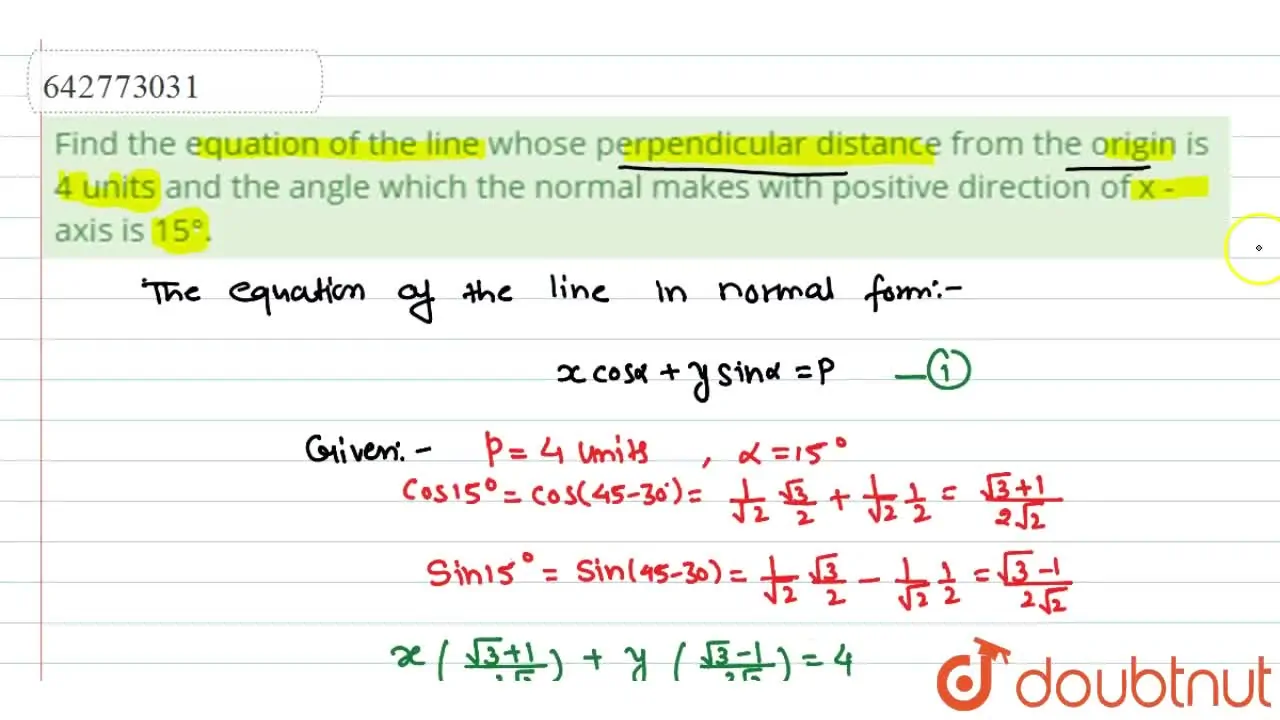 642773031
Find the equation of the line whose perpendicular distance from the origin is
4 units and the angle which the normal makes with positive direction of x -
axis is 15°.
The equation of the line in normal form:-
x cosα + y sinα = P —①
Given:- P = 4 units , α = 15°
Cos15° = cos(45-30°) = 1/√2 √3/2 + 1/√2 1/2 = √3+1/2√2
Sin15° = Sin(45-30) = 1/√2 √3/2 - 1/√2 1/2 = √3-1/2√2
x (√3+1/2√2) + y (√3-1/2√2) = 4
doubtnut